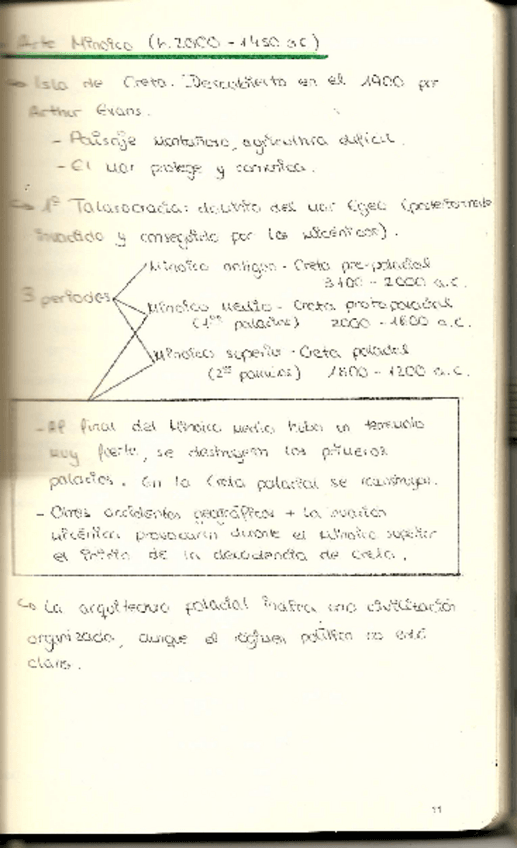 Arte Minoico (h. 2000 - 1450 a.C)
↳ Isla de Creta. Descubierto en el 1900 por
Arthur Evans.
- Paisaje montañoso, agricultura difícil.
- El mar protege y comunica.
↳ 1ª Talasocracia: dominio del mar Egeo (posteriormente
invadido y conseguido por los micénicos).
3 periodos
Minoico antiguo - Creta pre-palacial
3400 - 2000 a.C.
Minoico Medio - Creta protopalacial
(1ºˢ palacios) 2000 - 1800 a.C.
Minoico superior - Creta palacial
(2ºˢ palacios) 1800 - 1200 a.C.
- Al final del Minoico Medio hubo un terremoto
muy fuerte, se destruyen los primeros
palacios. En la Creta palacial se reconstruyen.
- Otros accidentes geográficos + la invasión
micénica provocaron durante el Minoico superior
el inicio de la decadencia de Creta.
↳ La arquitectura palacial indica una civilización
organizada, aunque el régimen político no está
claro.
11